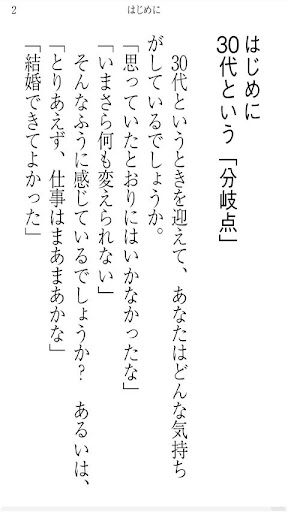 2
はじめに
はじめに
30代という「分岐点」
30代というときを迎えて、あなたはどんな気持ち
がしているでしょうか。
「思っていたとおりにはいかなかったな」
「いまさら何も変えられない」
そんなふうに感じているでしょうか？　あるいは、
「とりあえず、仕事はまあまあかな」
「結婚できてよかった」